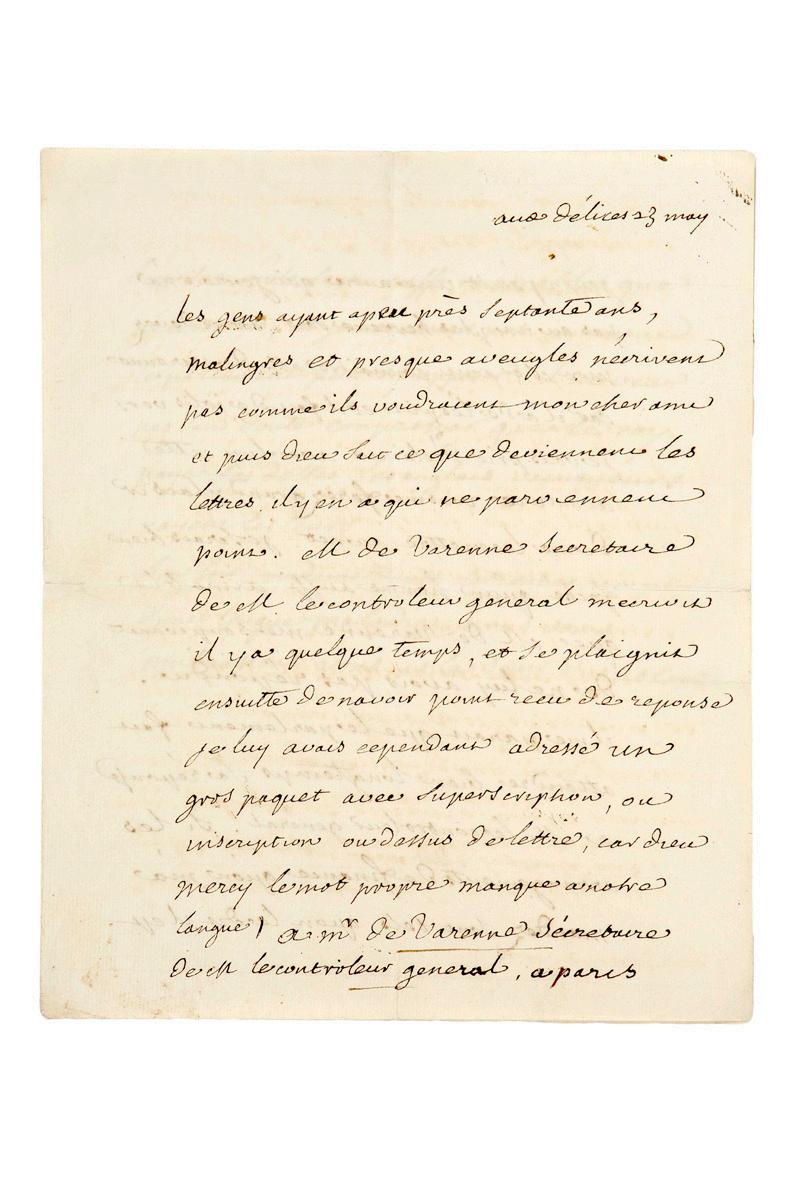 aux délices 23 may
les gens ayant apeu près septante ans,
malingres et presque aveugles nécrivent
pas comme ils voudraient mon cher ami
et puis dieu sait ce que deviennent les
lettres. il y en a qui ne parviennent
point. M de Varenne secretaire
de M. le controleur general mecrivit
il y a quelque temps, et se plaignit
ensuitte de navoir point receu de reponse
je luy avais cependant adressé un
gros paquet avec superscription, ou
inscription ou dessus de lettre, car dieu
mercy le mot propre manque a notre
langue) a mr de Varenne sécretaire
de M le controleur general, a paris